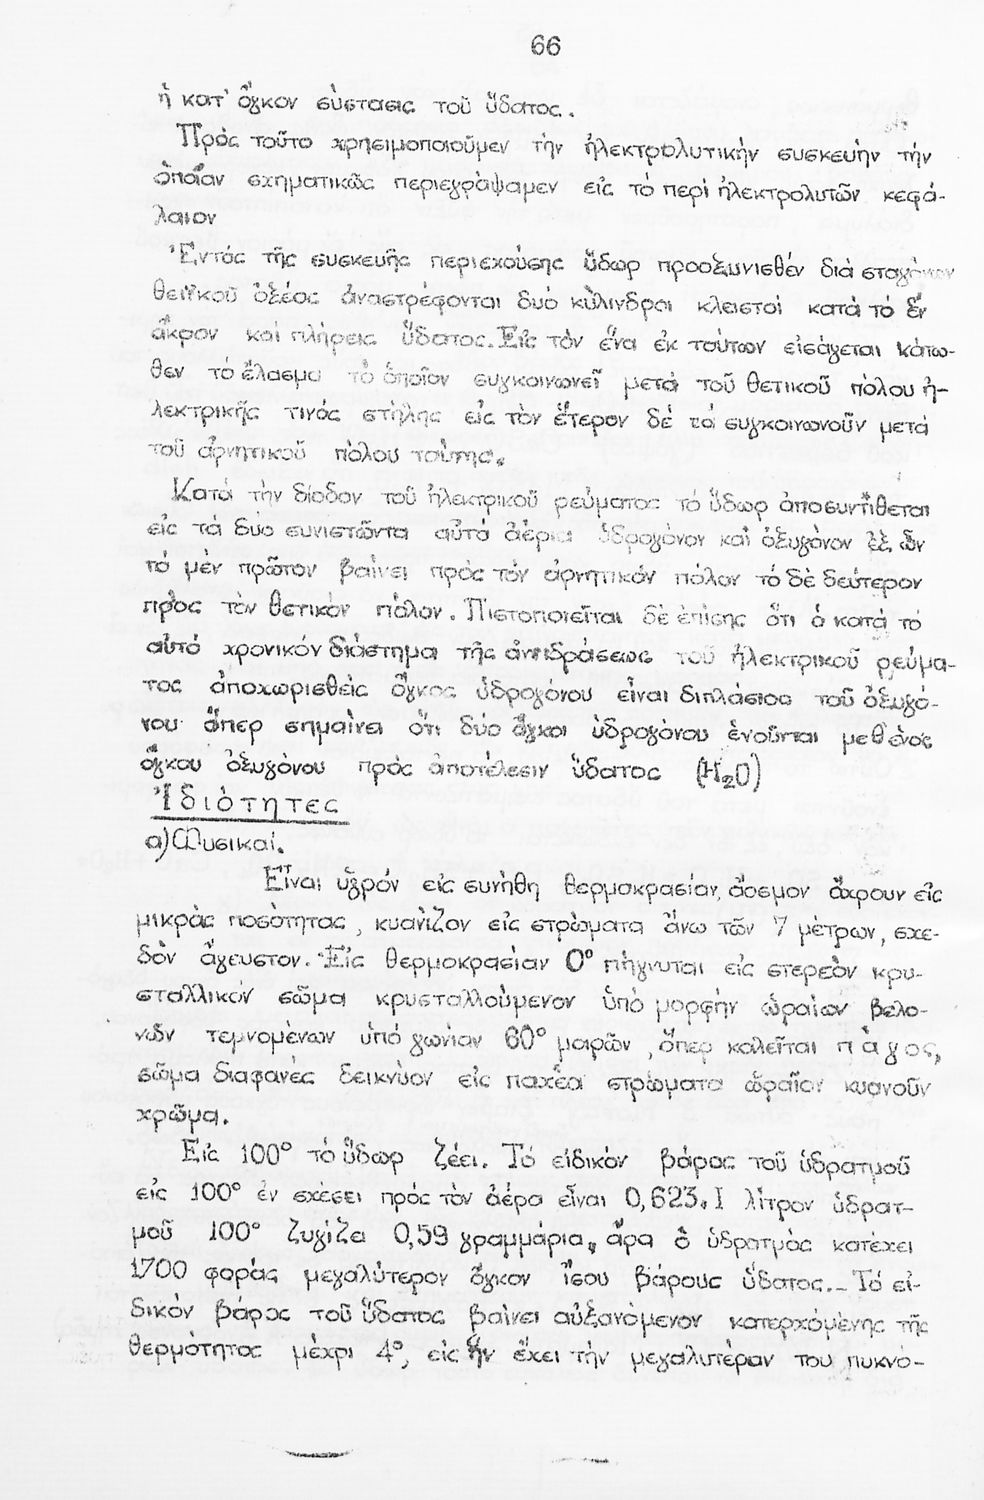 66
ἡ κατ' ὄγκον σύστασις τοῦ ὕδατος.
Πρός τοῦτο χρησιμοποιοῦμεν τήν ἠλεκτρολυτικήν συσκευήν τήν
ὁποίαν σχηματικῶς περιεγράψαμεν εἰς τό περί ἠλεκτρολυτῶν κεφά-
λαιον
Ἐντός τῆς συσκευῆς περιεχούσης ὕδωρ προοξυνισθέν διά σταγόνων
θειϊκοῦ ὀξέος ἀναστρέφονται δυό κύλινδροι κλειστοί κατά τό ἕν
ἄκρον καί πλήρεις ὕδατος. Εἰς τόν ἕνα ἐκ τούτων εἰσάγεται κάτω-
θεν τό ἔλασμα τό ὁποῖον συγκοινωνεῖ μετά τοῦ θετικοῦ πόλου ἠ-
λεκτρικῆς τινός στήλης εἰς τόν ἕτερον δέ τό συγκοινωνοῦν μετά
τοῦ ἀρνητικοῦ πόλου ταύτης.
Κατά τήν δίοδον τοῦ ἠλεκτρικοῦ ρεύματος τό ὕδωρ ἀποσυντίθεται
εἰς τά δύο συνιστῶντα αὐτό ἀέρια ὑδρογόνον καί ὀξυγόνον ἐξ ὧν
τό μέν πρῶτον βαίνει πρός τόν ἀρνητικόν πόλον τό δέ δεύτερον
πρός τόν θετικόν πόλον. Πιστοποιεῖται δέ ἐπίσης ὅτι ὁ κατά τό
αὐτό χρονικόν διάστημα τῆς ἀντιδράσεως τοῦ ἠλεκτρικοῦ ρεύμα-
τος ἀποχωρισθείς ὄγκος ὑδρογόνου εἶναι διπλάσιος τοῦ ὀξυγό-
νου ὅπερ σημαίνει ὅτι δύο ὄγκοι ὑδρογόνου ἑνοῦνται μεθ' ἑνός
ὄγκου ὀξυγόνου πρός ἀποτέλεσιν ὕδατος (H₂O)
Ἰδιότητες
α) Φυσικαί.
Εἶναι ὑγρόν εἰς συνήθη θερμοκρασίαν, ἄοσμον ἄχρουν εἰς
μικράς ποσότητας, κυανίζον εἰς στρώματα ἄνω τῶν 7 μέτρων, σχε-
δόν ἄγευστον. Εἰς θερμοκρασίαν 0° πήγνυται εἰς στερεόν κρυ-
σταλλικόν σῶμα κρυσταλλούμενον ὑπό μορφήν ὡραίων βελο-
νῶν τεμνομένων ὑπό γωνίαν 60° μοιρῶν, ὅπερ καλεῖται πάγος,
σῶμα διαφανές δεικνύον εἰς παχέα στρώματα ὡραῖον κυανοῦν
χρῶμα.
Εἰς 100° τό ὕδωρ ζέει. Τό εἰδικόν βάρος τοῦ ὑδρατμοῦ
εἰς 100° ἐν σχέσει πρός τόν ἀέρα εἶναι 0,623. I λίτρον ὑδρατ-
μοῦ 100° ζυγίζει 0,59 γραμμάρια, ἄρα ὁ ὑδρατμός κατέχει
1700 φοράς μεγαλύτερον ὄγκον ἴσου βάρους ὕδατος._ Τό εἰ-
δικόν βάρος τοῦ ὕδατος βαίνει αὐξανόμενον κατερχομένης τῆς
θερμότητος μέχρι 4°, εἰς ἥν ἔχει τήν μεγαλυτέραν του πυκνό-